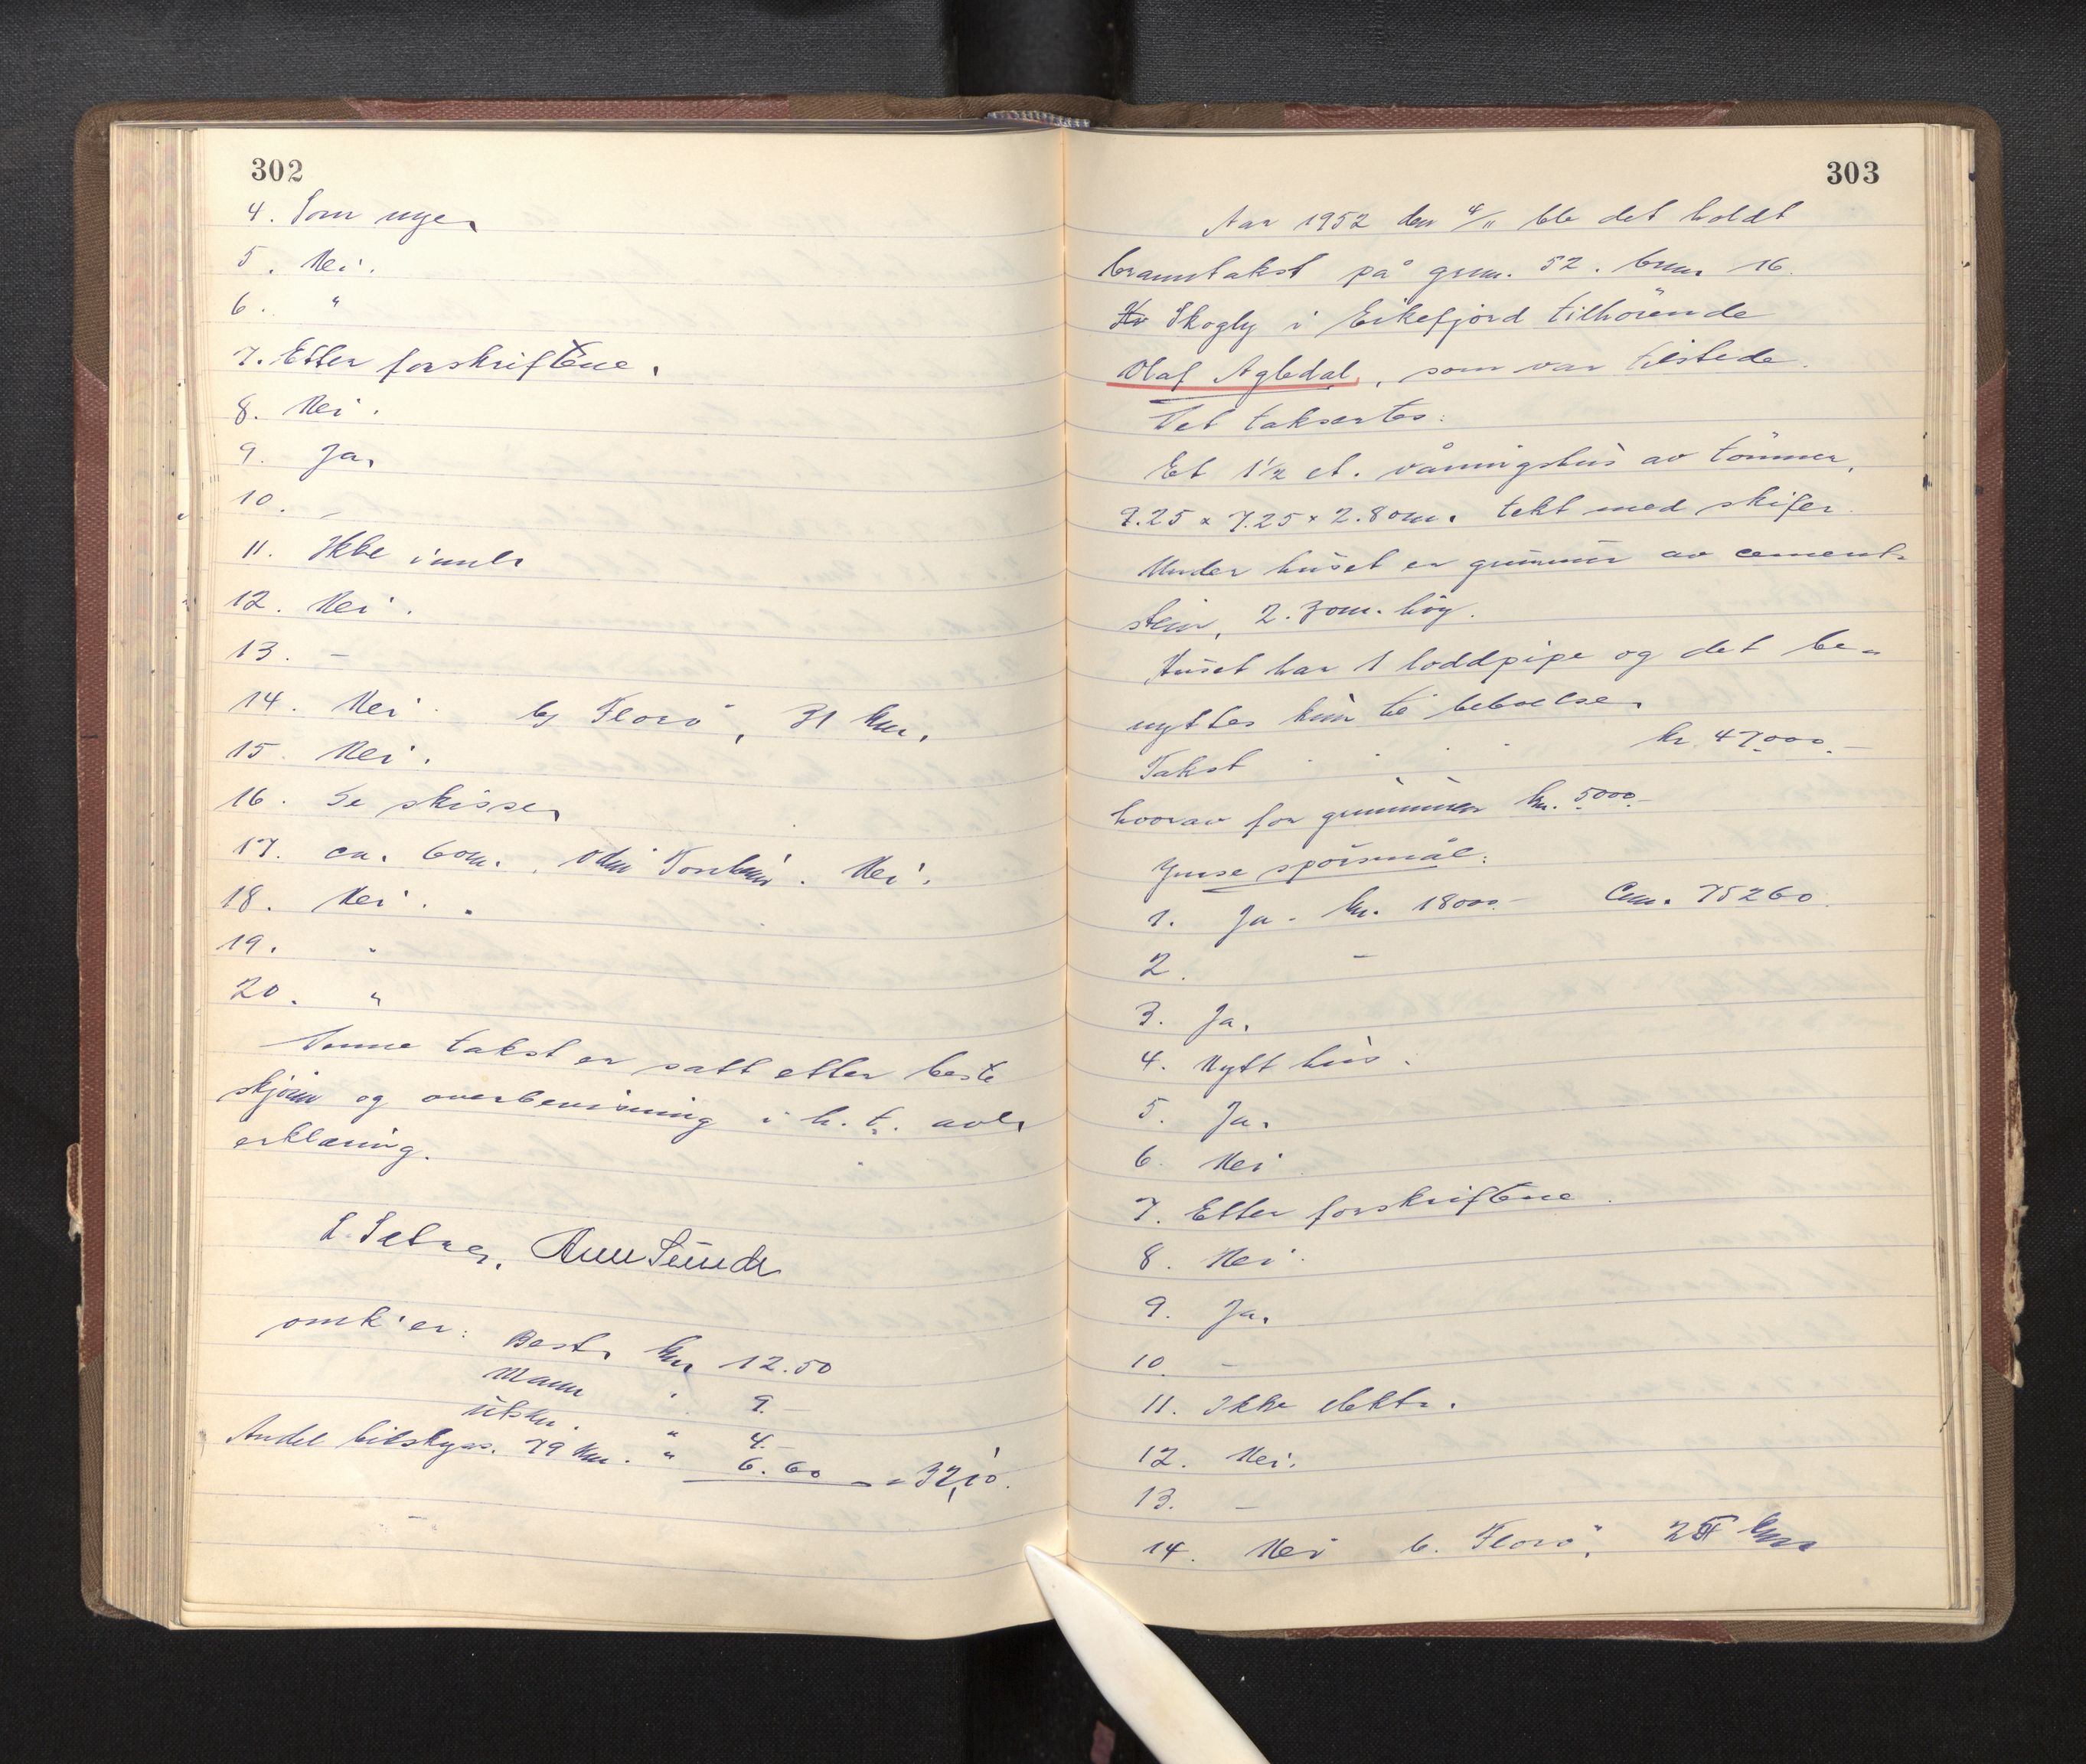 302
4. Som nye.
5. Nei.
6. "
7. Etter forskriftene.
8. Nei.
9. Ja.
10. -
11. Ikke innl.
12. Nei.
13. -
14. Nei. by Florö, 31 km.
15. Nei.
16. Se skisse.
17. ca. 60m. Nei.
18. Nei.
19. "
20. "
Denne takst er satt etter beste
skjönn og overbevisning i h. t. avl.
erklæring.
omk'er: Best. kr. 12.50
Mann " 9.-
utskr. " 4.-
Andel bilskyss. 79 km. " 6.60 = 32,10.
303
Aar 1952 den 4/11 ble det holdt
branntakst på gnr. 52. bnr. 16.
Skogly i Eikefjord tilhörende
Olaf Agledal, som var tilstede.
Det taksertes:
Et 1½ et. våningshus av tömmer,
9.25 x 7.25 x 2.80m. tekt med skifer.
Under huset er grunnur av cement-
stein, 2.30m. höy.
Huset har 1 loddpipe og det be-
nyttes kun til beboelse.
Takst . . . kr 47.000.-
hvorav for grunnmuren kr. 5000.-
Ymse spörsmål:
1. Ja. kr. 18000.- 75260.
2. -
3. Ja.
4. Nytt hus.
5. Ja.
6. Nei
7. Etter forskriftene.
8. Nei.
9. Ja.
10. -
11. Ikke elektr.
12. Nei.
13. -
14. Nei b. Florö, km